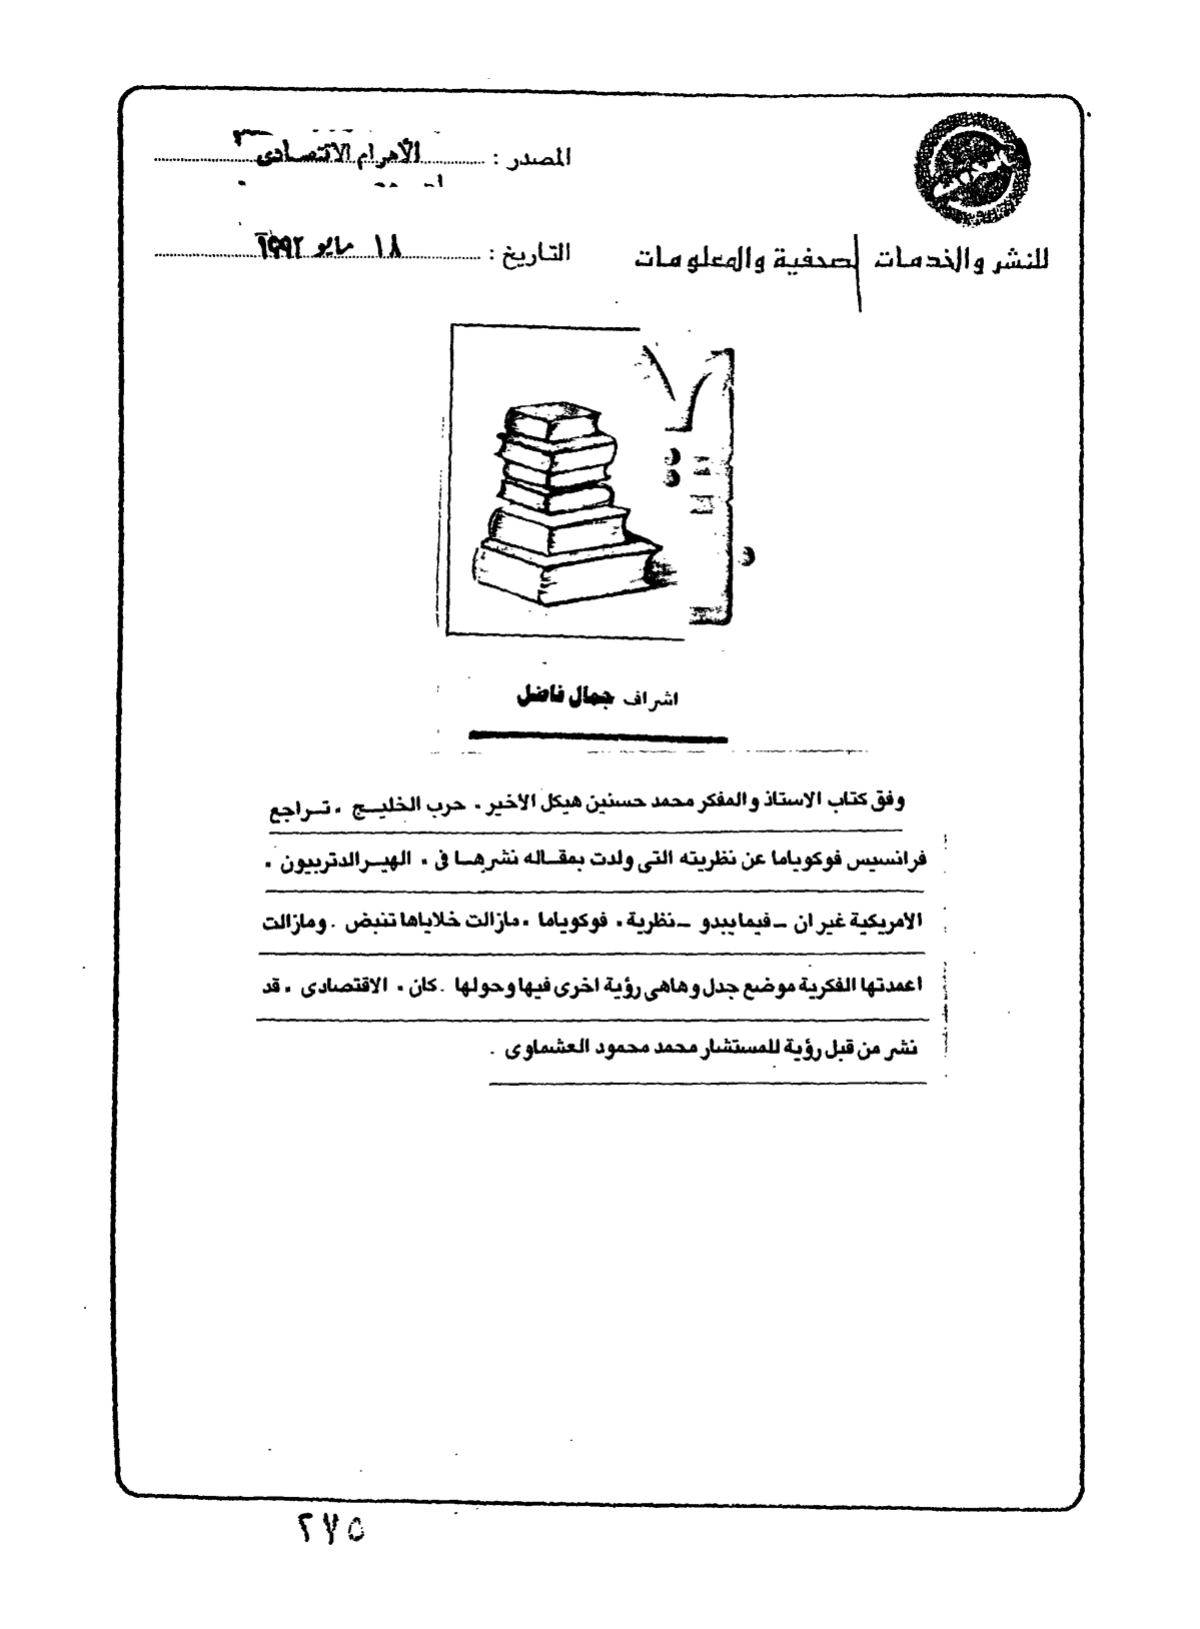 المصدر : الأهرام الاقتصادى
للنشر والخدمات الصحفية والمعلومات
التاريخ : ١٨ مايو ١٩٩٢
اشراف جمال فاضل
وفق كتاب الاستاذ والمفكر محمد حسنين هيكل الأخير . حرب الخليج . تراجع
فرانسيس فوكوياما عن نظريته التى ولدت بمقاله نشرها فى . الهيرالدتربيون .
الامريكية غير ان ــ فيما يبدو ــ نظرية . فوكوياما . مازالت خلاياها تنبض . ومازالت
اعمدتها الفكرية موضع جدل وهاهى رؤية اخرى فيها وحولها . كان . الاقتصادى . قد
نشر من قبل رؤية للمستشار محمد محمود العشماوى .
٢٧٥